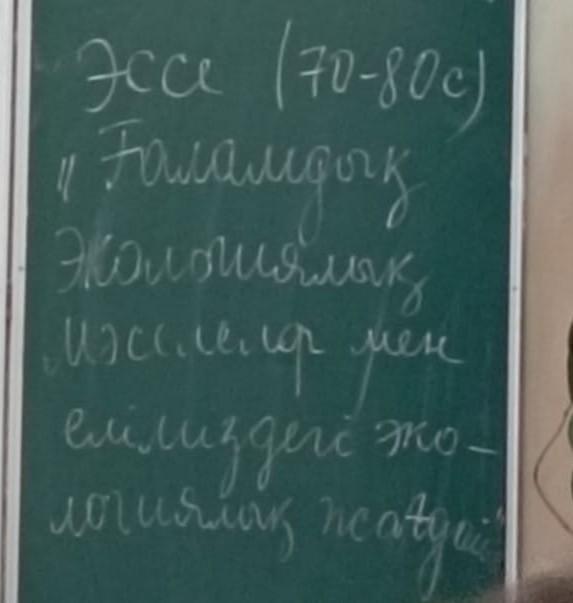 Эссе (70-80с)
„Ғаламдық
экологиялық
мәселелер мен
еліміздегі эко-
логиялық жағдай"